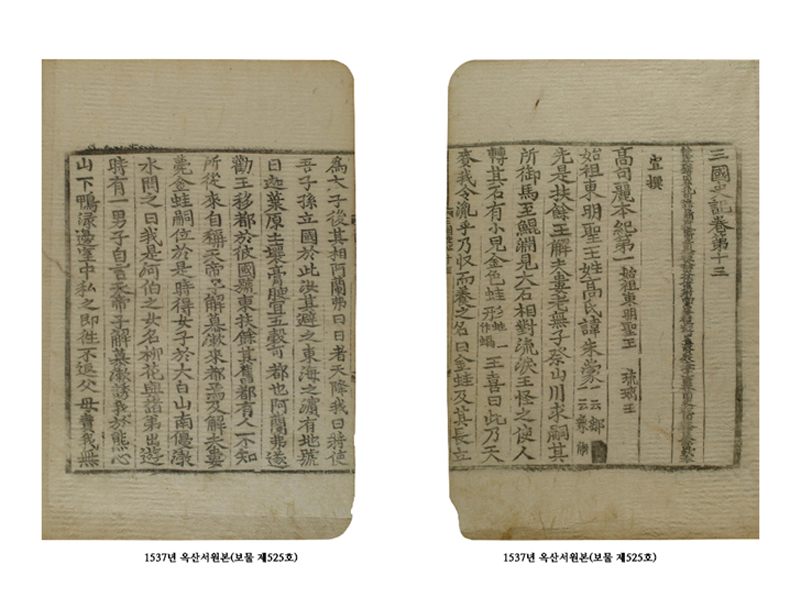 三國史記卷第十三
宣撰
高句麗本紀第一 始祖東明聖王 琉璃王
始祖東明聖王姓高氏諱朱蒙 一云鄒 一云衆解
先是扶餘王解夫婁老無子祭山川求嗣其
所御馬至鯤淵見大石相對流淚王怪之使人
轉其石有小兒金色蛙形 蛙一作蝸 王喜曰此乃天
賚我令胤乎乃收而養之名曰金蛙及其長立
爲大子後其相阿蘭弗曰日者天降我曰將使
吾子孫立國於此汝其避之東海之濱有地號
曰迦葉原土壤膏腴宜五穀可都也阿蘭弗遂
勸王移都於彼國號東扶餘其舊都有人不知
所從來自稱天帝子解慕漱來都焉及解夫婁
薨金蛙嗣位於是時得女子於大白山南優渤
水問之曰我是河伯之女名柳花與諸弟出遊
時有一男子自言天帝子解慕漱誘我於熊心
山下鴨淥邊室中私之即徃不返父母責我無
1537년 옥산서원본(보물 제525호)
1537년 옥산서원본(보물 제525호)